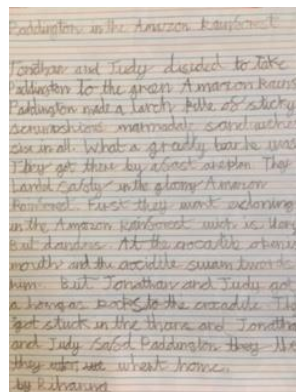 Paddington in the Amazon Rainforest
Jonathan and Judy disided to take
Paddington to the green Amazon Rains
Paddington made a larch pille of sticky
marmalade sandwiches
six in all. What a greatly bar he was
They got there by a fast areplan. They
Landid safely in the gloomy Amazon
Rainforest. First they went exploring
in the Amazon Rainforest wich is Very
But dandrus. At the crocodile opened
mouth and the crocidile swam twords
him. But Jonathan and Judy got
a rocks to the crocadile. The
got stuck in the thorns and Jonathan
and Judy Paddington they
they went home.
by Rihanna